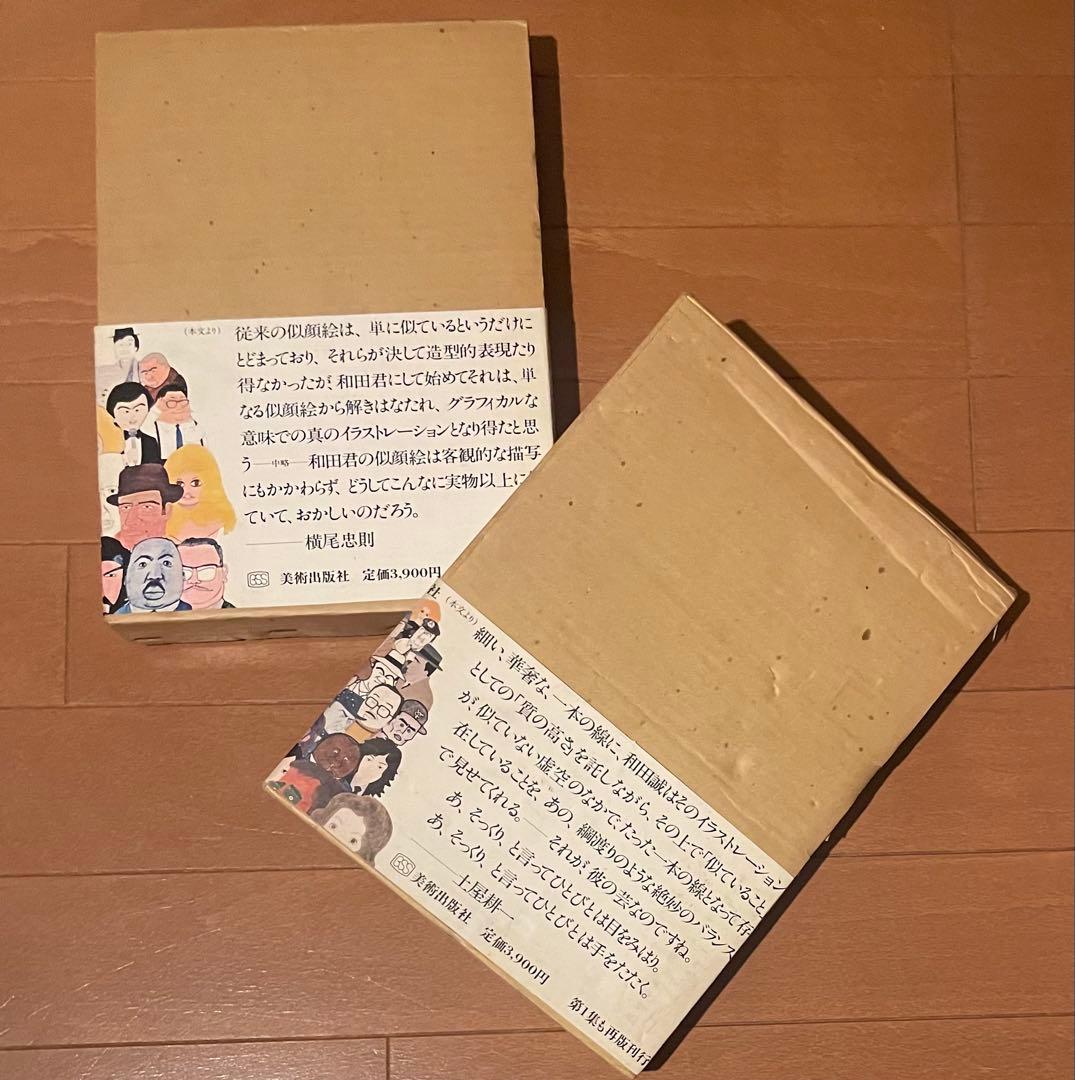 (本文より)
従来の似顔絵は、単に似ているというだけに
とどまっており、それらが決して造型的表現たり
得なかったが、和田君にして始めてそれは、単
なる似顔絵から解きはなたれ、グラフィカルな
意味での真のイラストレーションとなり得たと思
う——中略——和田君の似顔絵は客観的な描写
にもかかわらず、どうしてこんなに実物以上に
ていて、おかしいのだろう。
——横尾忠則
BSS 美術出版社 定価3,900円
社
(本文より)
細い、華奢な、一本の線に、和田誠はそのイラストレーション
としての「質の高さ」を託しながら、その上で「似ていること」
が、似ていない虚空のなかで、たった一本の線となって存
在していることを、あの、綱渡りのような絶妙のバランス
で見せてくれる。——それが、彼の芸なのですね。
あ、そっくり、と言ってひとびとは目をみはり。
あ、そっくり、と言ってひとびとは手をたたく。
——土屋耕一
BSS 美術出版社 定価3,900円
第1集も再版刊行